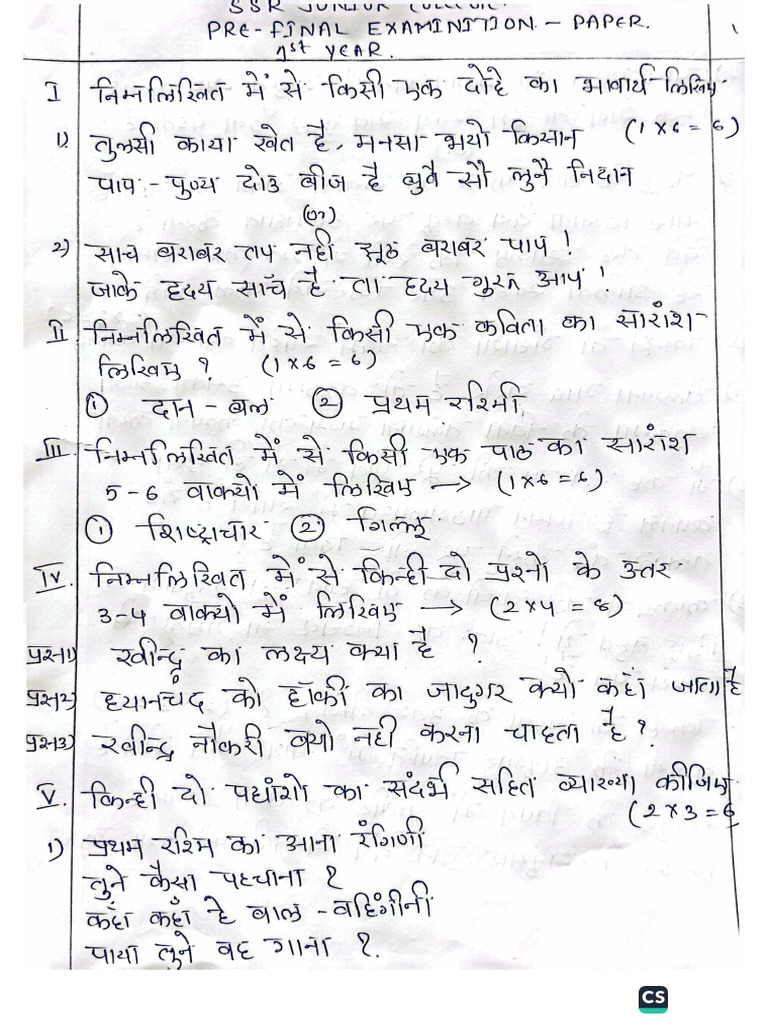 SSR JUNIOR COLLEGE.
PRE-FINAL EXAMINITION - PAPER.
1st YEAR.
I निम्नलिखित में से किसी एक दोहे का भावार्थ लिखिए
1) तुलसी काया खेत है, मनसा भयो किसान (1 x 6 = 6)
पाप - पुण्य दोउ बीज है बुवै सौ लुनै निदान
(अ)
2) साच बराबर तप नही झूठ बराबर पाप !
जाके हृदय साँच है ता हृदय गुरु आप !
II निम्नलिखित में से किसी एक कविता का सारांश
लिखिए ? (1 x 6 = 6)
① दान - बल ② प्रथम रश्मी
III निम्नलिखित में से किसी एक पाठ का सारांश
5-6 वाक्यो में लिखिए → (1 x 6 = 6)
① शिष्टाचार ② गिल्लू
IV. निम्नलिखित में से किन्ही दो प्रश्नो के उत्तर
3-4 वाक्यो में लिखिए → (2 x 4 = 8)
प्रस्न1) रवीन्द्र का लक्ष्य क्या है ?
प्रस्न2) ध्यानचंद को हॉकी का जादुगर क्यो कहाँ जाता है
प्रस्न3) रवीन्द्र नौकरी क्यो नही करना चाहता है ?
V. किन्ही दो पद्यांशो का संदर्भ सहित व्याख्या कीजिए
(2 x 3 = 6
1) प्रथम रश्मि का आना रंगिणी
तुने कैसा पहचाना ?
कहाँ कहाँ हे बाल - वहिंगीनी
पाया तुने वह गाना ?.
CS